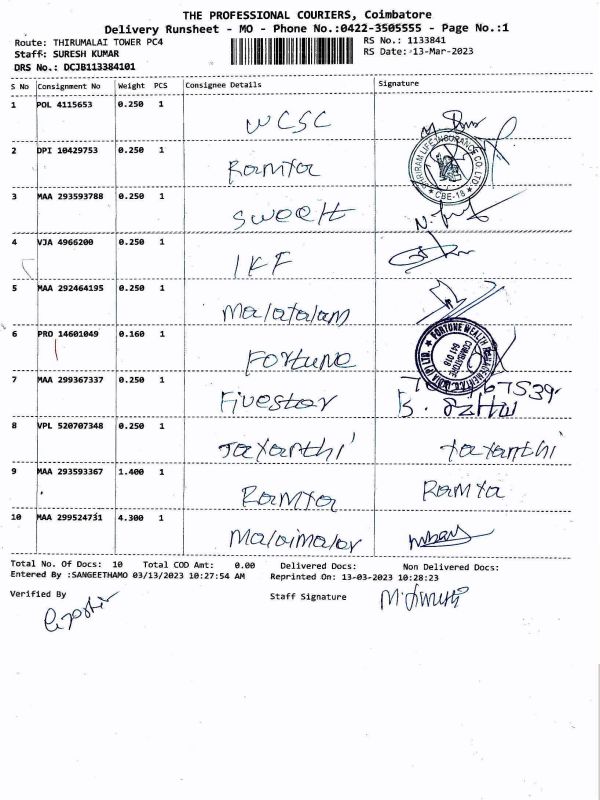 THE PROFESSIONAL COURIERS, Coimbatore
Delivery Runsheet - MO - Phone No.:0422-3505555 - Page No.:1
Route: THIRUMALAI TOWER PC4
RS No.: 1133841
Staff: SURESH KUMAR
RS Date: 13-Mar-2023
DRS No.: DCJB113384101
S No Consignment No Weight PCS Consignee Details Signature
1 POL 4115653 0.250 1 WCSC
2 DPI 10429753 0.250 1 Ramya
SHRIRAM LIFE INSURANCE CO. LTD. CBE-18
3 MAA 293593788 0.250 1 Sweelt
4 VJA 4966200 0.250 1 IKF
5 MAA 292464195 0.250 1 Malayalam
6 PRO 14601049 0.160 1 Fortune
FORTUNE WEALTH MANAGEMENT CO. INDIA (P) LTD. COIMBATORE 641 018
7 MAA 299367337 0.250 1 Fivestar
8 VPL 520707348 0.250 1 Jayanthi Jayanthi
9 MAA 293593367 1.400 1 Ramya Ramya
10 MAA 299524731 4.300 1 Malaimalar
Total No. Of Docs: 10 Total COD Amt: 0.00 Delivered Docs: Non Delivered Docs:
Entered By :SANGEETHAMO 03/13/2023 10:27:54 AM Reprinted On: 13-03-2023 10:28:23
Verified By
Staff Signature